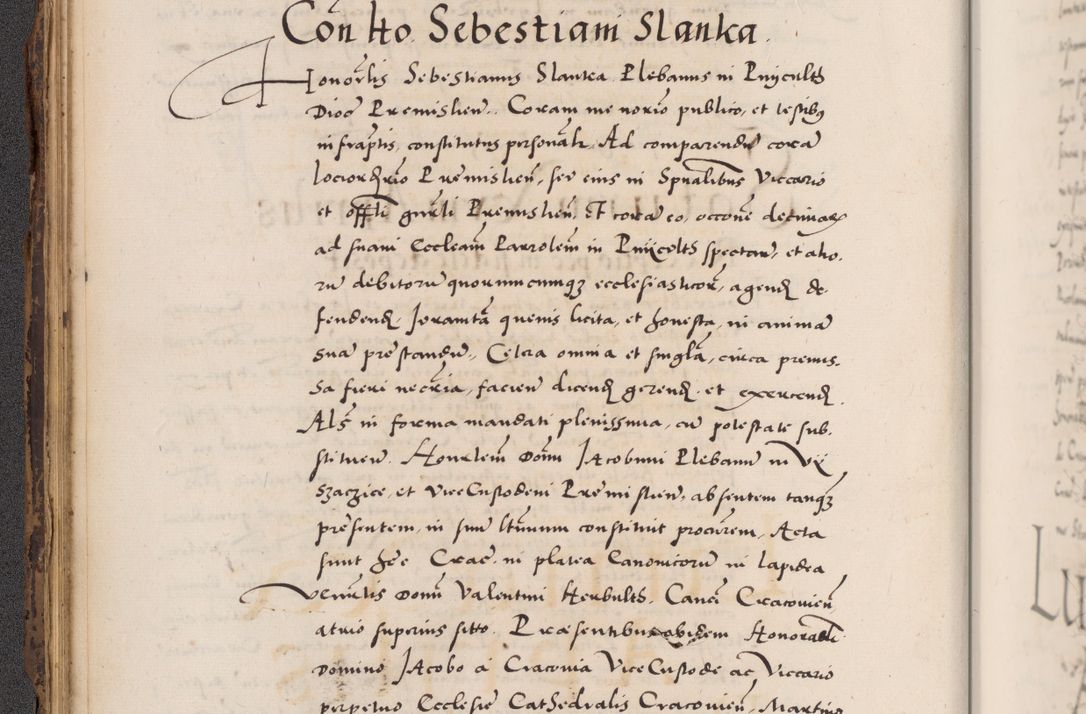 Con̄tto Sebestiani Slanka
Honor̄lis Sebestianus Slanka Plebanus in Pnijcultħ
Dioc̄ Premislien̄. Coram me nor̄io publico, et testibꝯ
infrap̄tis, constitutus personal̄r. Ad comparendū corā
locior̄d̄rio Premislien̄, seu eius in Spūalibus Viccario
et off̄li gn̄rli Premislien̄. Et corā eo, occone decimaꝝ
ad suam Eccleam̄ Parrolem̄ in Pnijcoltħ spectan̄, et alio-
rū debitorū quorumcumqꝫ ecclesiasticor̄, agend̄ de-
fendend̄. Joramtā queuis licita, et honesta, in animā
suā prestandū. Cetera omnia et singla̅, circa premis-
sa fieri necr̄ia, facien̄ dicend̄ gerend̄ et exercend̄.
Als̄ in forma mandati plenissima, cū potestate sub-
stituen̄. Honorlem̄ Dōm Jacobum Plebanū in Vÿ
szaczice, et ViceCustodem Premislien̄, absentem tanqꝫ
presentem, in suū ltimum constituit procr̄em, Acta
sunt hec Crac̄. in platea Canonicorū in lapidea
Vener̄lis Domī Valentini Herbultħ. Canci Cracouien̄
atrio superius sitto. Præsentibus ibidem Honorabli
Domino Jacobo a Cracouia ViceCustode ac Viccario
perpetuo Ecclesie Cathedralis Cracouien̄, Martino